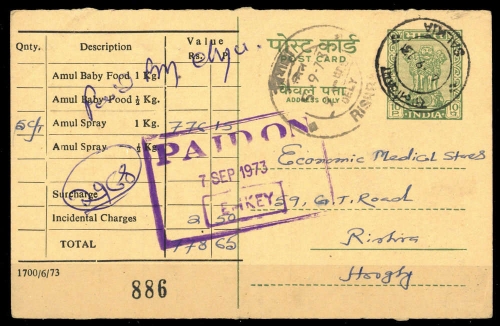 Qnty. Description Value
Rs.
Amul Baby Food 1 Kg.
Amul Baby Food ½ Kg.
Amul Spray 1 Kg. 776 15
Amul Spray ½ Kg.
Surcharge
Incidental Charges 2 50
TOTAL 778 65
1700/6/73
886
पोस्ट कार्ड
POST CARD
केवल पता
ADDRESS ONLY
INDIA
SALKIA
PAID ON
7 SEP 1973
Economic Medical Stores
59, G.T. Road
Rishra
Hoogly